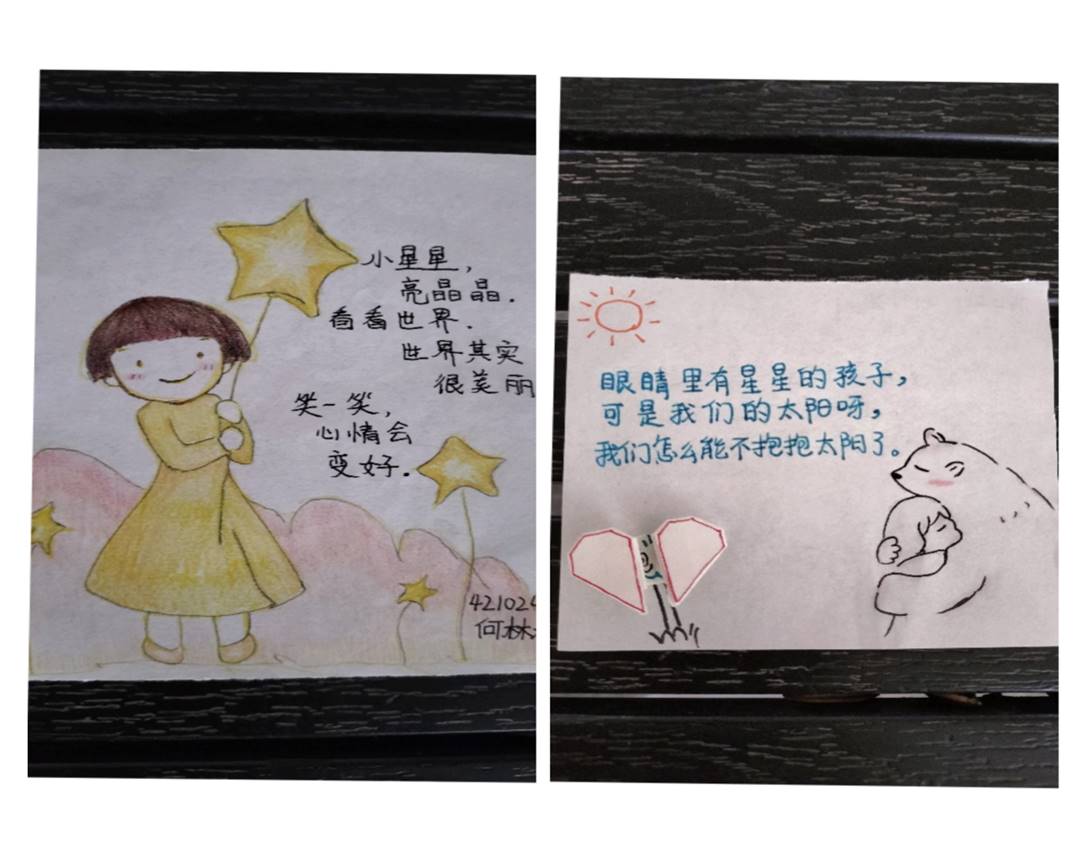 小星星，
亮晶晶.
看看世界.
世界其实
很美丽
笑一笑,
心情会
变好.
421024
何林
眼睛里有星星的孩子，
可是我们的太阳呀，
我们怎么能不抱抱太阳了。